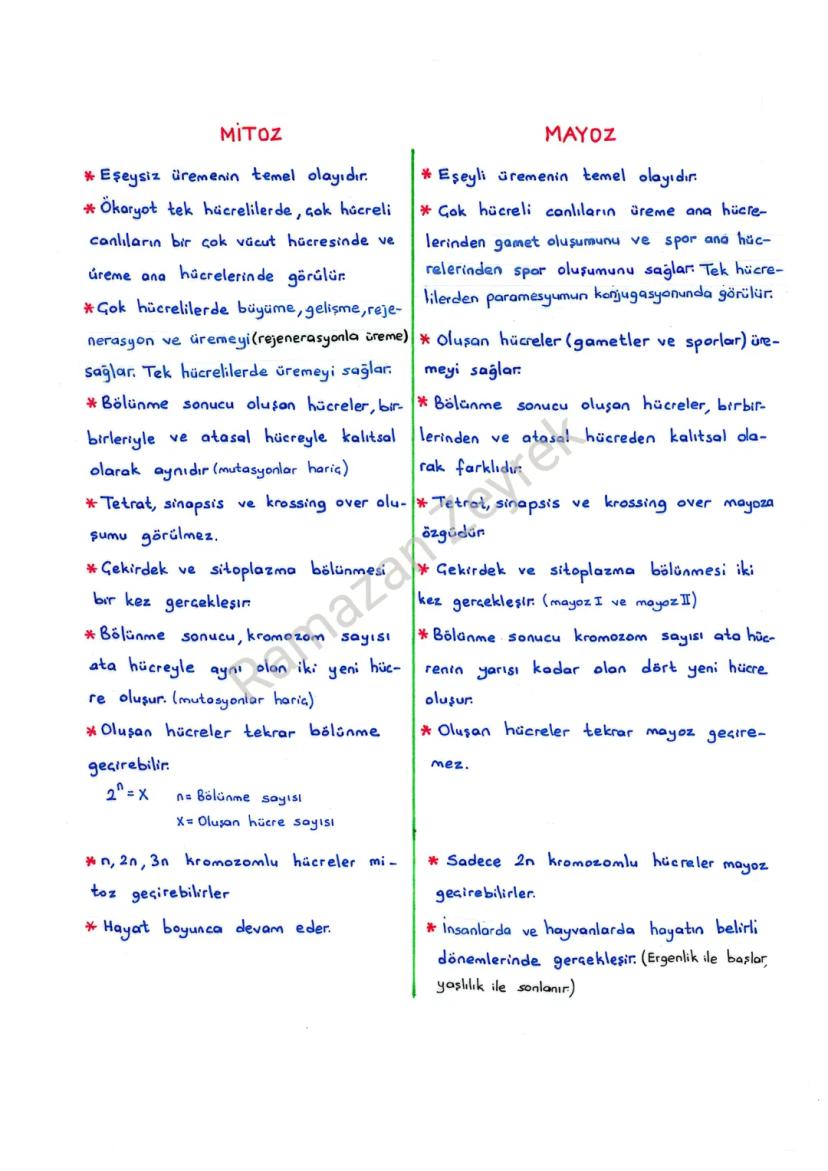 MİTOZ
* Eşeysiz üremenin temel olayıdır.
* Ökaryot tek hücrelilerde, çok hücreli
canlıların bir çok vücut hücresinde ve
üreme ana hücrelerinde görülür.
* Çok hücrelilerde büyüme, gelişme, reje-
nerasyon ve üremeyi (rejenerasyonla üreme)
sağlar. Tek hücrelilerde üremeyi sağlar.
* Bölünme sonucu oluşan hücreler, bir-
birleriyle ve atasal hücreyle kalıtsal
olarak aynıdır (mutasyonlar hariç)
* Tetrat, sinapsis ve krossing over olu-
şumu görülmez.
* Çekirdek ve sitoplazma bölünmesi
bir kez gerçekleşir.
* Bölünme sonucu, kromozom sayısı
ata hücreyle aynı olan iki yeni hüc-
re oluşur. (mutasyonlar hariç)
* Oluşan hücreler tekrar bölünme
geçirebilir.
2ⁿ = X n= Bölünme sayısı
X= Oluşan hücre sayısı
* n, 2n, 3n kromozomlu hücreler mi-
toz geçirebilirler
* Hayat boyunca devam eder.
MAYOZ
* Eşeyli üremenin temel olayıdır.
* Çok hücreli canlıların üreme ana hücre-
lerinden gamet oluşumunu ve spor ana hüc-
relerinden spor oluşumunu sağlar. Tek hücre-
lilerden paramesyumun konjugasyonunda görülür.
* Oluşan hücreler (gametler ve sporlar) üre-
meyi sağlar.
* Bölünme sonucu oluşan hücreler, birbir-
lerinden ve atasal hücreden kalıtsal ola-
rak farklıdır.
* Tetrat, sinapsis ve krossing over mayoza
özgüdür.
* Çekirdek ve sitoplazma bölünmesi iki
kez gerçekleşir. (mayoz I ve mayoz II)
* Bölünme sonucu kromozom sayısı ata hüc-
renin yarısı kadar olan dört yeni hücre
oluşur.
* Oluşan hücreler tekrar mayoz geçire-
mez.
* Sadece 2n kromozomlu hücreler mayoz
geçirebilirler.
* İnsanlarda ve hayvanlarda hayatın belirli
dönemlerinde gerçekleşir. (Ergenlik ile başlar,
yaşlılık ile sonlanır.)
Ramazan Zeyrek